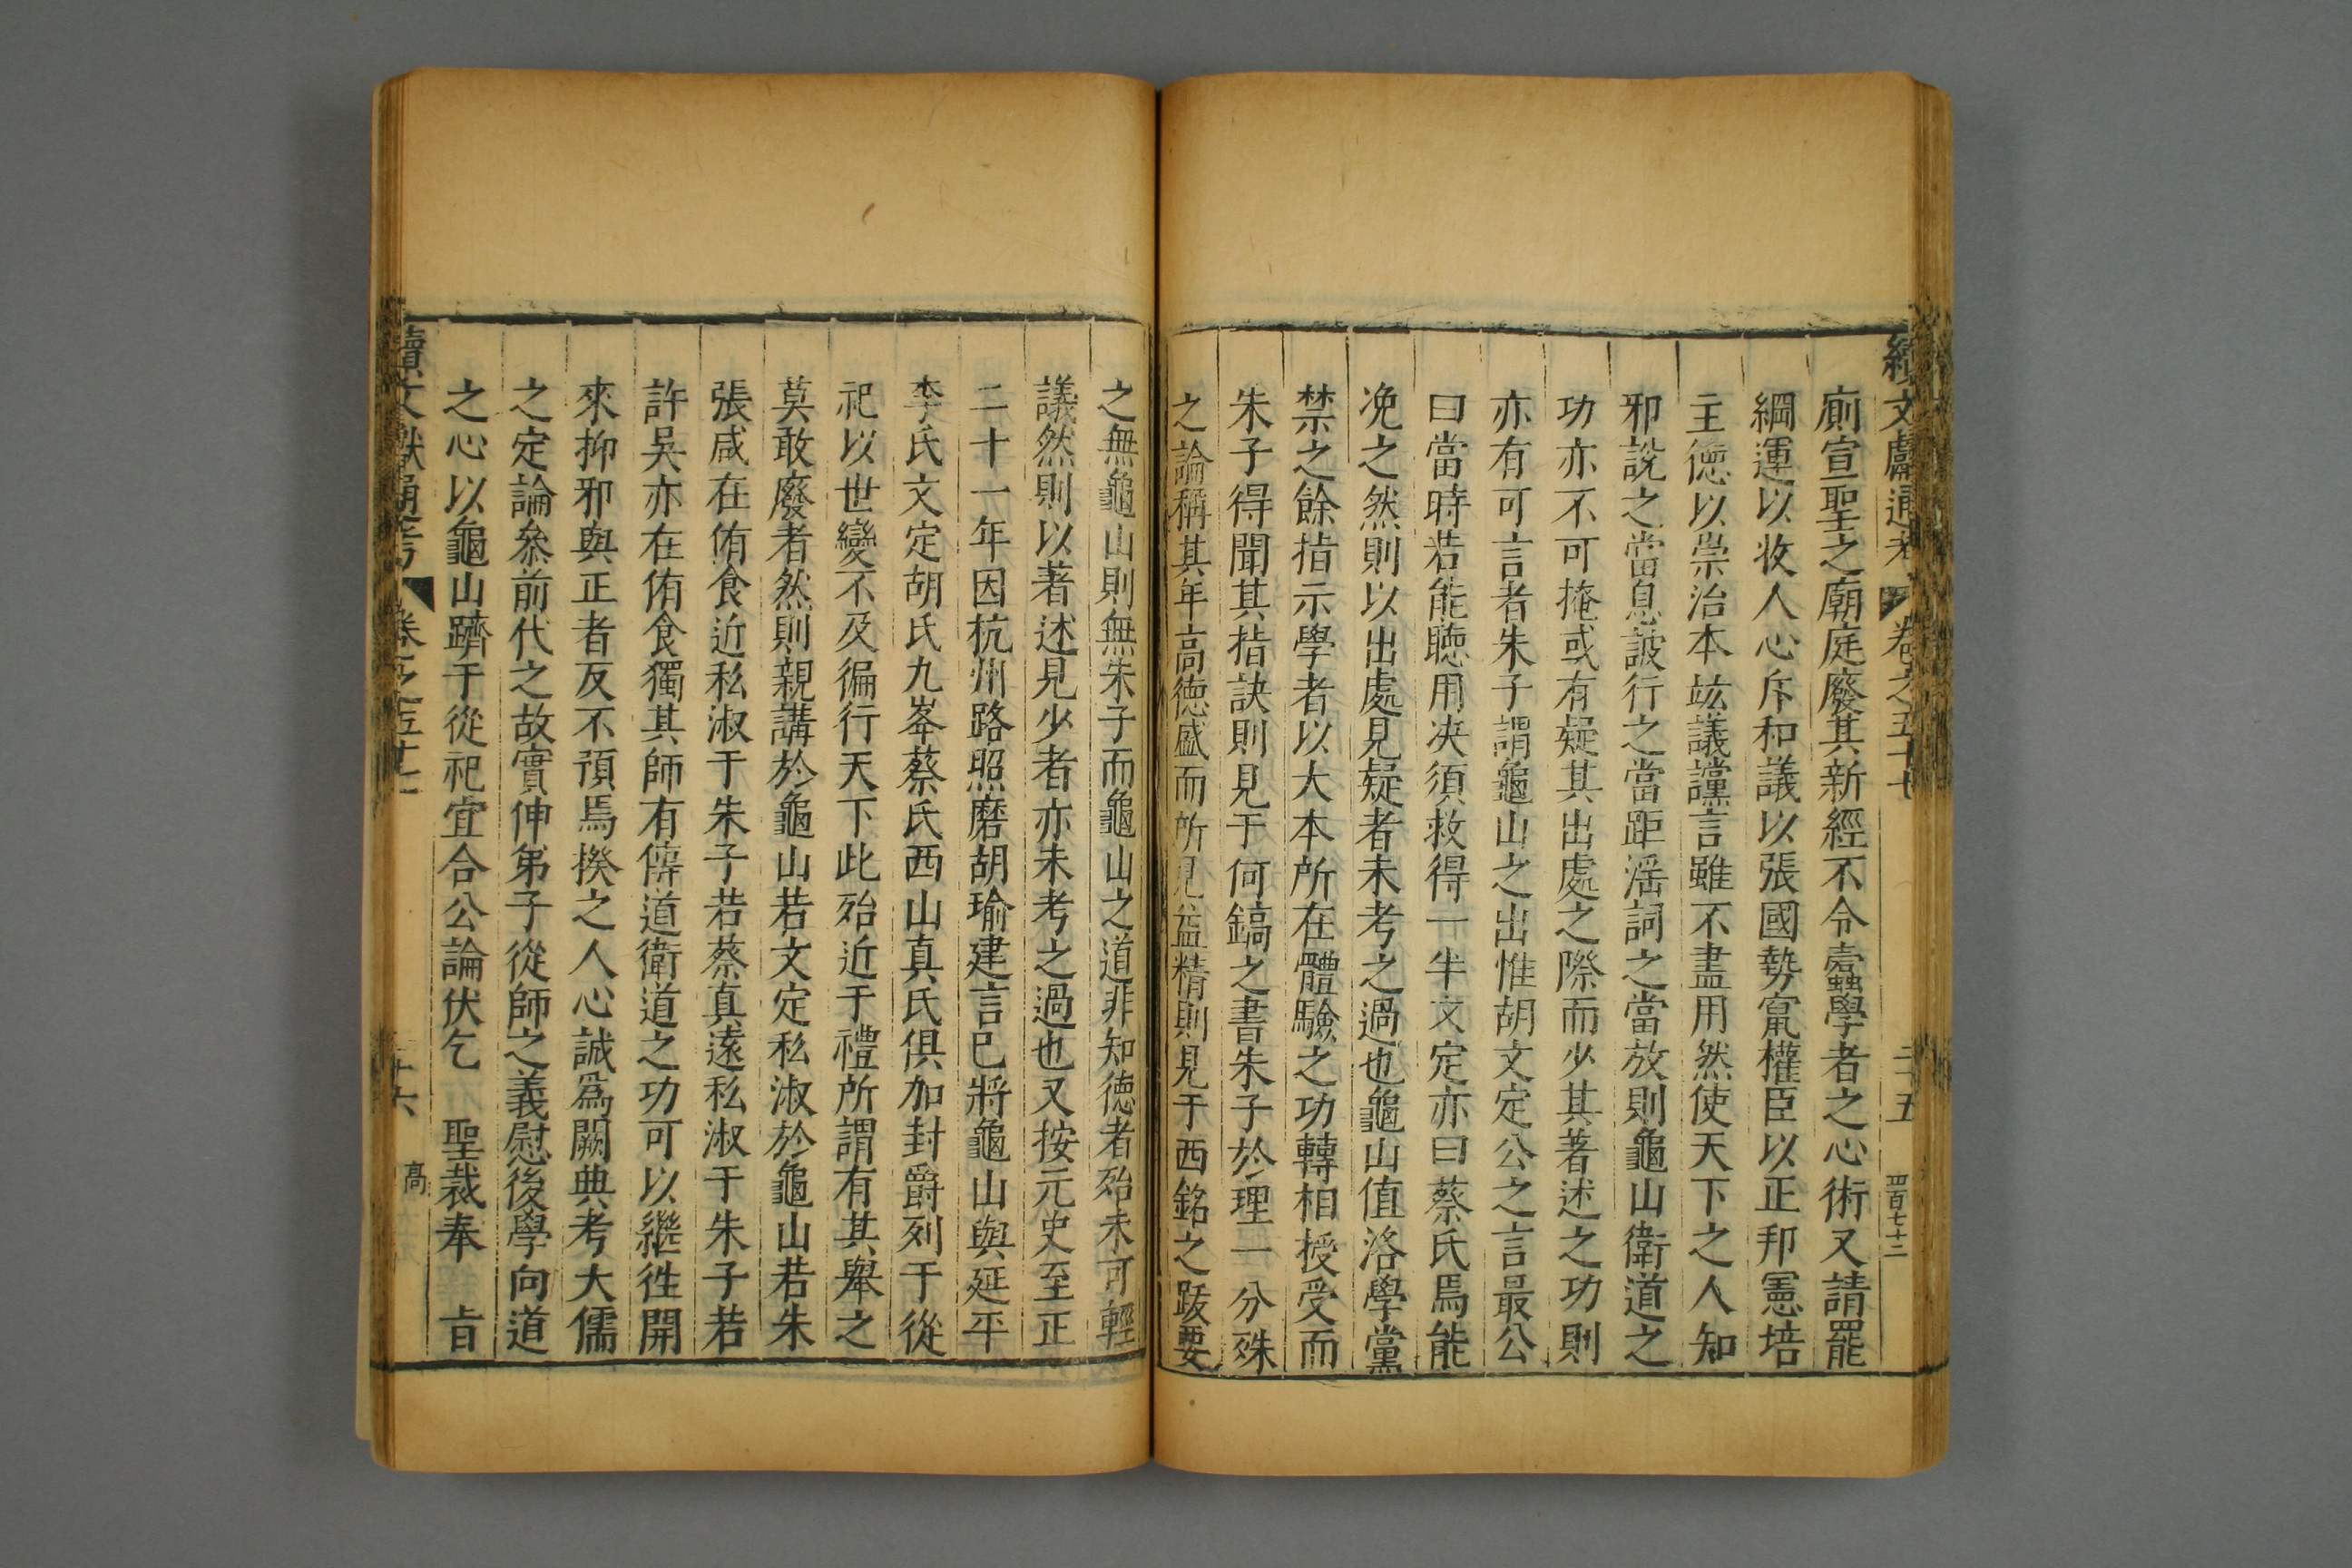 續文獻通考 卷之五十七 二十五 四百七十二
廁宣聖之廟庭廢其新經不令蠹學者之心術又請罷
綱運以收人心斥和議以張國勢竄權臣以正邦憲培
主德以崇治本竑議讜言雖不盡用然使天下之人知
邪說之當息詖行之當距滛詞之當放則龜山衛道之
功亦不可掩或有疑其出處之際而少其著述之功則
亦有可言者朱子謂龜山之出惟胡文定公之言最公
曰當時若能聽用决須救得一半文定亦曰蔡氏焉能
凂之然則以出處見疑者未考之過也龜山值洛學黨
禁之餘指示學者以大本所在體驗之功轉相授受而
朱子得聞其指訣則見于何鎬之書朱子於理一分殊
之論稱其年高德盛而所見益精則見于西銘之跋要
之無龜山則無朱子而龜山之道非知德者殆未可輕
議然則以著述見少者亦未考之過也又按元史至正
二十一年因杭州路照磨胡瑜建言已將龜山與延平
李氏文定胡氏九峯蔡氏西山真氏俱加封爵列于從
祀以世變不及徧行天下此殆近于禮所謂有其舉之
莫敢廢者然則親講於龜山若文定私淑於龜山若朱
張咸在侑食近私淑于朱子若蔡真遠私淑于朱子若
許吳亦在侑食獨其師有傳道衛道之功可以繼徃開
來抑邪與正者反不預焉揆之人心誠爲闕典考大儒
之定論叅前代之故實伸弟子從師之義慰後學向道
之心以龜山躋于從祀宜合公論伏乞 聖裁奉 旨
續文獻通考 卷之五十七 二十六 高